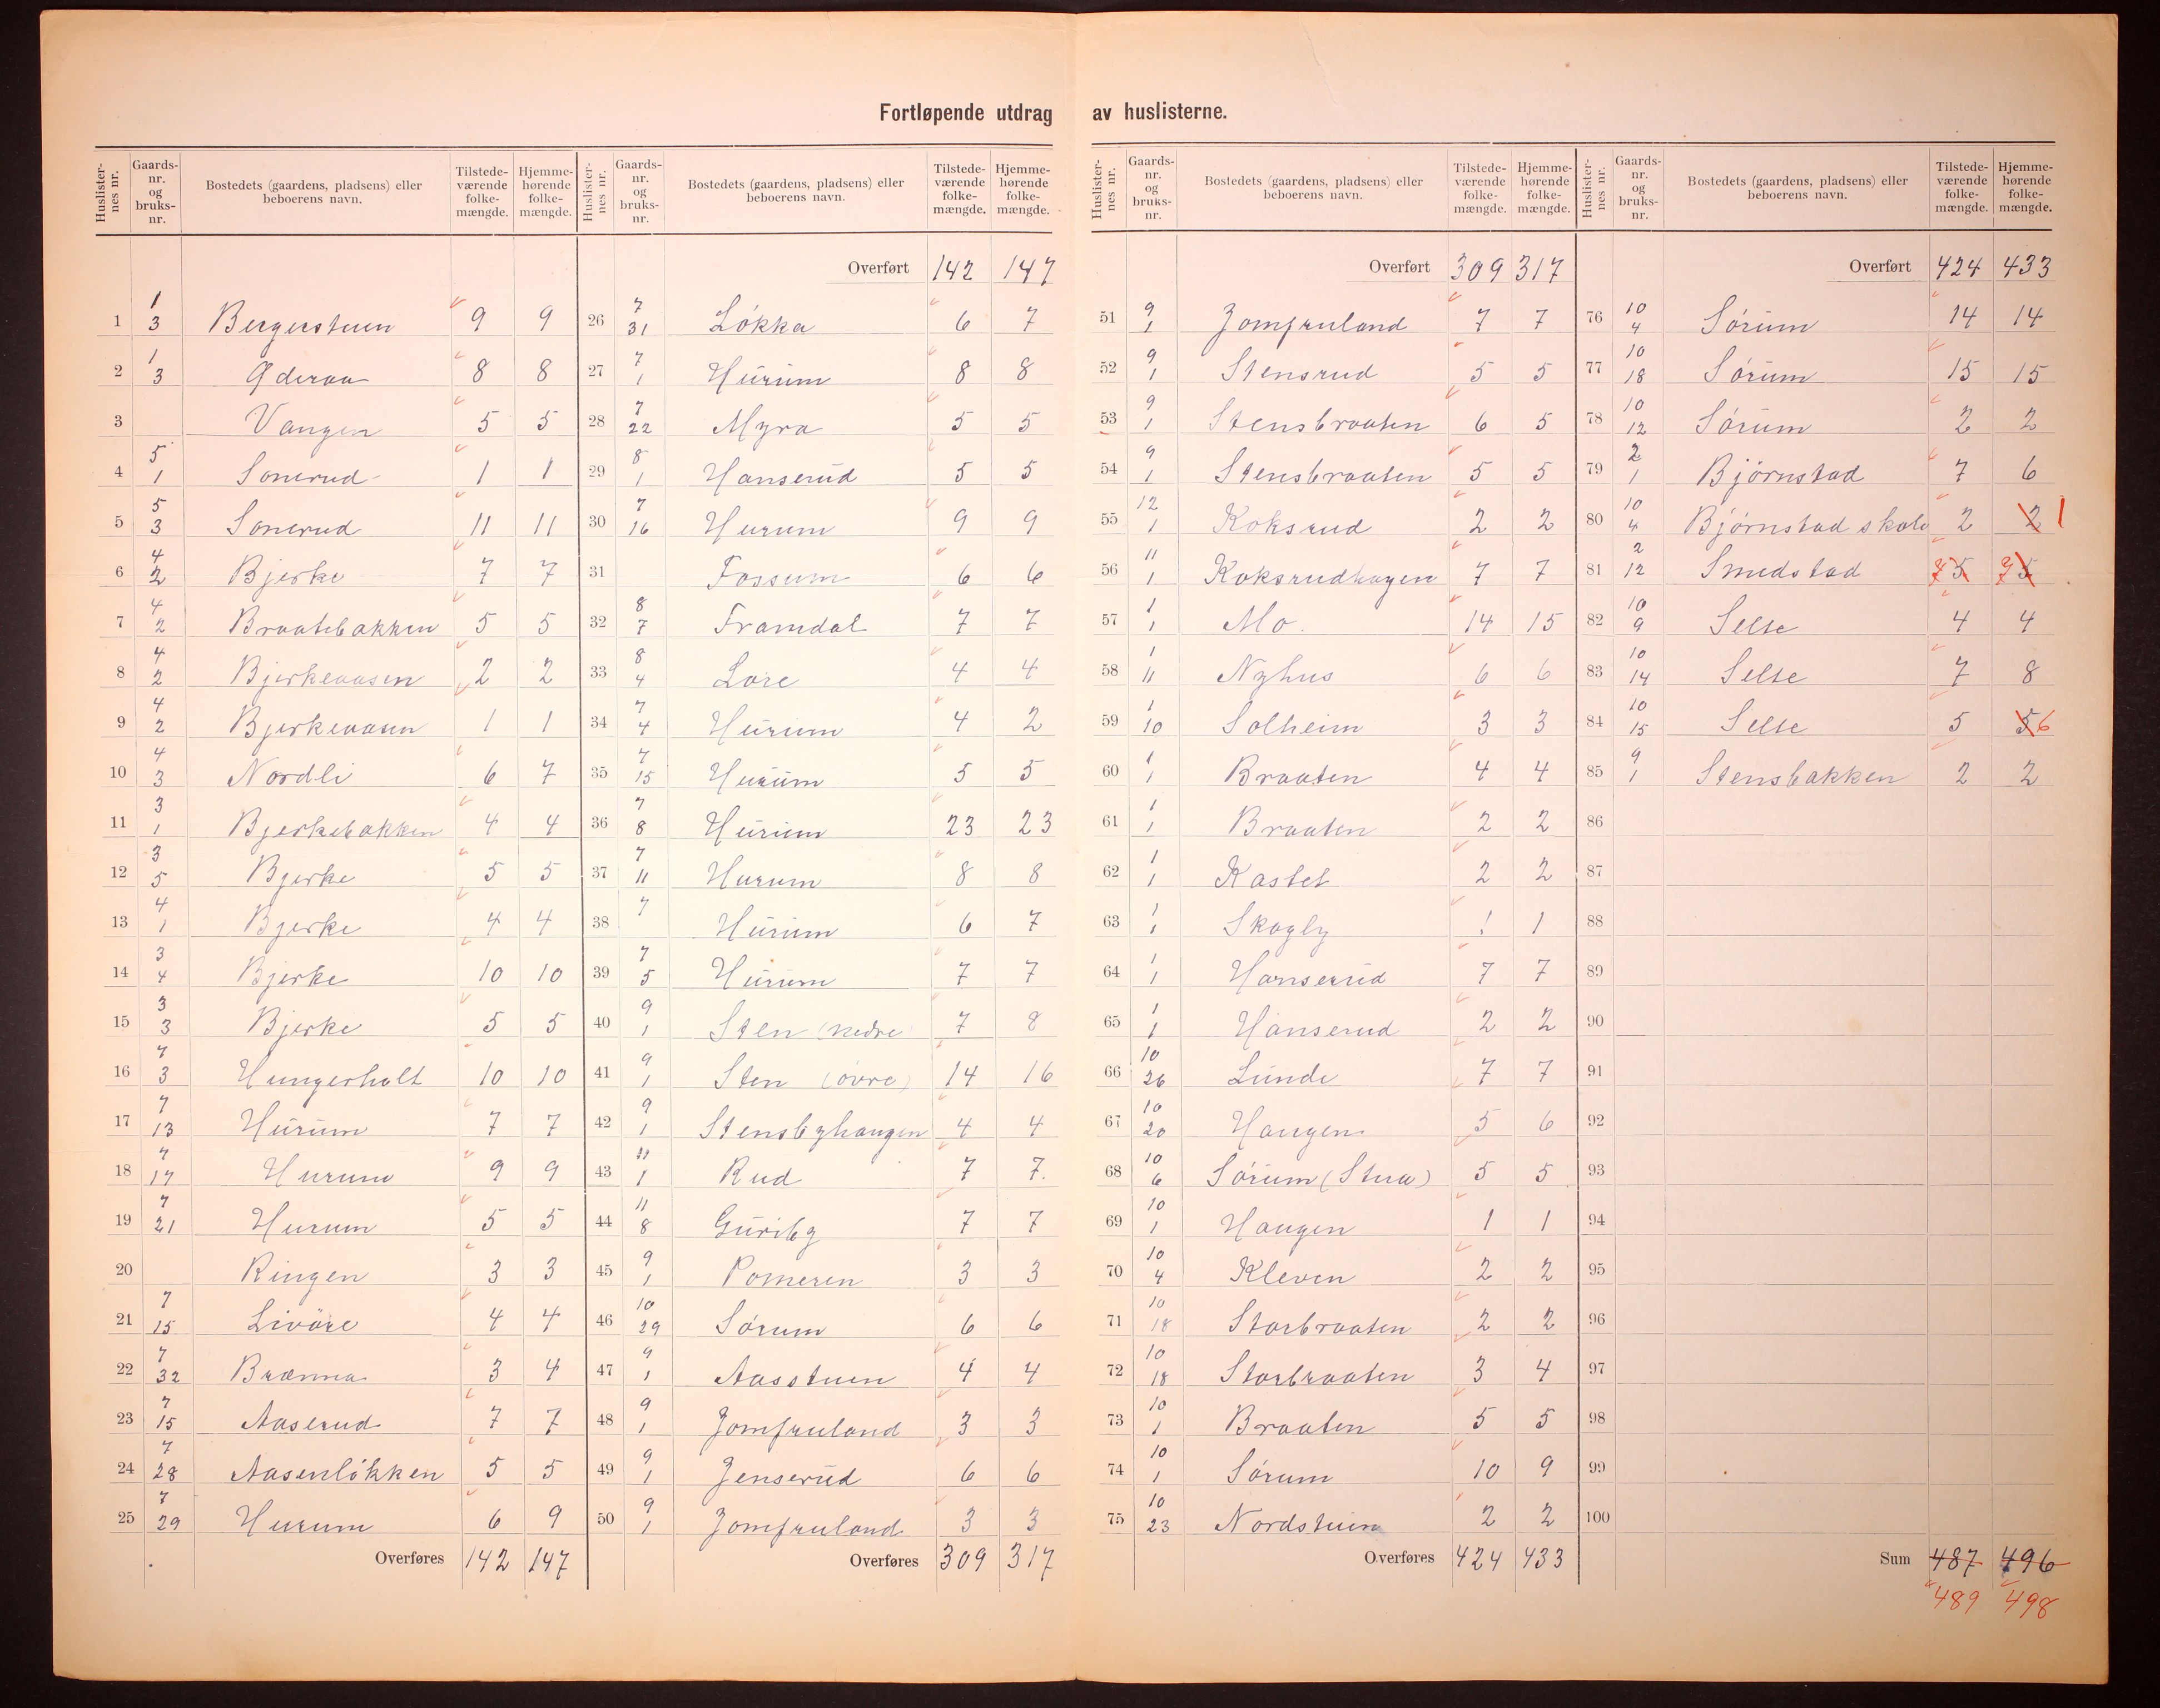 Fortløpende utdrag av huslisterne.
Huslister-nes nr. Gaards-nr. og bruks-nr. Bostedets (gaardens, pladsens) eller beboerens navn. Tilstede-værende folke-mængde. Hjemme-hørende folke-mængde.
1 1/3 Bergerstuen 9 9
2 1/3 Øderaa 8 8
3 Vangen 5 5
4 5/1 Sonerud 1 1
5 5/3 Sonerud 11 11
6 4/2 Bjerke 7 7
7 4/2 Braatebakken 5 5
8 4/2 Bjerkeaasen 2 2
9 4/2 Bjerkeaasen 1 1
10 4/3 Nordli 6 7
11 3/1 Bjerkebakken 4 4
12 3/5 Bjerke 5 5
13 4/1 Bjerke 4 4
14 3/4 Bjerke 10 10
15 3/3 Bjerke 5 5
16 7/3 Hungerholt 10 10
17 7/13 Hurum 7 7
18 7/17 Hurum 9 9
19 7/21 Hurum 5 5
20 Ringen 3 3
21 7/15 Livöre 4 4
22 7/32 Brænna 3 4
23 7/15 Aaserud 7 7
24 7/28 Aasenløkken 5 5
25 7/29 Hurum 6 9
Overføres 142 147
Huslister-nes nr. Gaards-nr. og bruks-nr. Bostedets (gaardens, pladsens) eller beboerens navn. Tilstede-værende folke-mængde. Hjemme-hørende folke-mængde.
Overført 142 147
26 7/31 Løkka 6 7
27 7/1 Hurum 8 8
28 7/22 Myra 5 5
29 8/1 Hanserud 5 5
30 7/16 Hurum 9 9
31 Fossum 6 6
32 8/7 Framdal 7 7
33 8/4 Løre 4 4
34 7/4 Hurum 4 2
35 7/15 Hurum 5 5
36 7/8 Hurum 23 23
37 7/11 Hurum 8 8
38 7 Hurum 6 7
39 7/5 Hurum 7 7
40 9/1 Sten (nedre 7 8
41 9/1 Sten (øvre) 14 16
42 9/1 Stensbyhaugen 4 4
43 11/1 Rud 7 7.
44 11/8 Guriby 7 7
45 9/1 Pomeren 3 3
46 10/29 Sørum 6 6
47 9/1 Aasstuen 4 4
48 9/1 Jomfruland 3 3
49 9/1 Jenserud 6 6
50 9/1 Jomfruland 3 3
Overføres 309 317
Huslister-nes nr. Gaards-nr. og bruks-nr. Bostedets (gaardens, pladsens) eller beboerens navn. Tilstede-værende folke-mængde. Hjemme-hørende folke-mængde.
Overført 309 317
51 9/1 Jomfruland 7 7
52 9/1 Stensrud 5 5
53 9/1 Stensbraaten 6 5
54 9/1 Stensbraaten 5 5
55 12/1 Koksrud 2 2
56 11/1 Koksrudhagen 7 7
57 1/1 Mo. 14 15
58 1/11 Nyhus 6 6
59 1/10 Solheim 3 3
60 1/1 Braaten 4 4
61 1/1 Braaten 2 2
62 1/1 Kastet 2 2
63 1/1 Skogly 1 1
64 1/1 Hanserud 7 7
65 1/1 Hanserud 2 2
66 10/26 Lunde 7 7
67 10/20 Haugen 5 6
68 10/6 Sørum (Stua) 5 5
69 10/1 Haugen 1 1
70 10/4 Kleven 2 2
71 10/18 Storbraaten 2 2
72 10/18 Storbraaten 3 4
73 10/1 Braaten 5 5
74 10/1 Sørum 10 9
75 10/23 Nordstuen 2 2
Overføres 424 433
Huslister-nes nr. Gaards-nr. og bruks-nr. Bostedets (gaardens, pladsens) eller beboerens navn. Tilstede-værende folke-mængde. Hjemme-hørende folke-mængde.
Overført 424 433
76 10/4 Sørum 14 14
77 10/18 Sørum 15 15
78 10/12 Sørum 2 2
79 2/1 Bjørnstad 7 6
80 10/4 Bjørnstad skole 2 2 1
81 2/12 Smedstad 7 5 7 5
82 10/9 Selte 4 4
83 10/14 Selte 7 8
84 10/15 Selte 5 5 6
85 9/1 Stensbakken 2 2
86
87
88
89
90
91
92
93
94
95
96
97
98
99
100
Sum 487 496
489 498